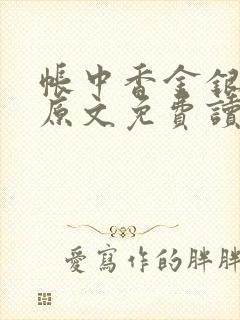 帳中香金銀
原文免費讀
愛寫作的胖胖